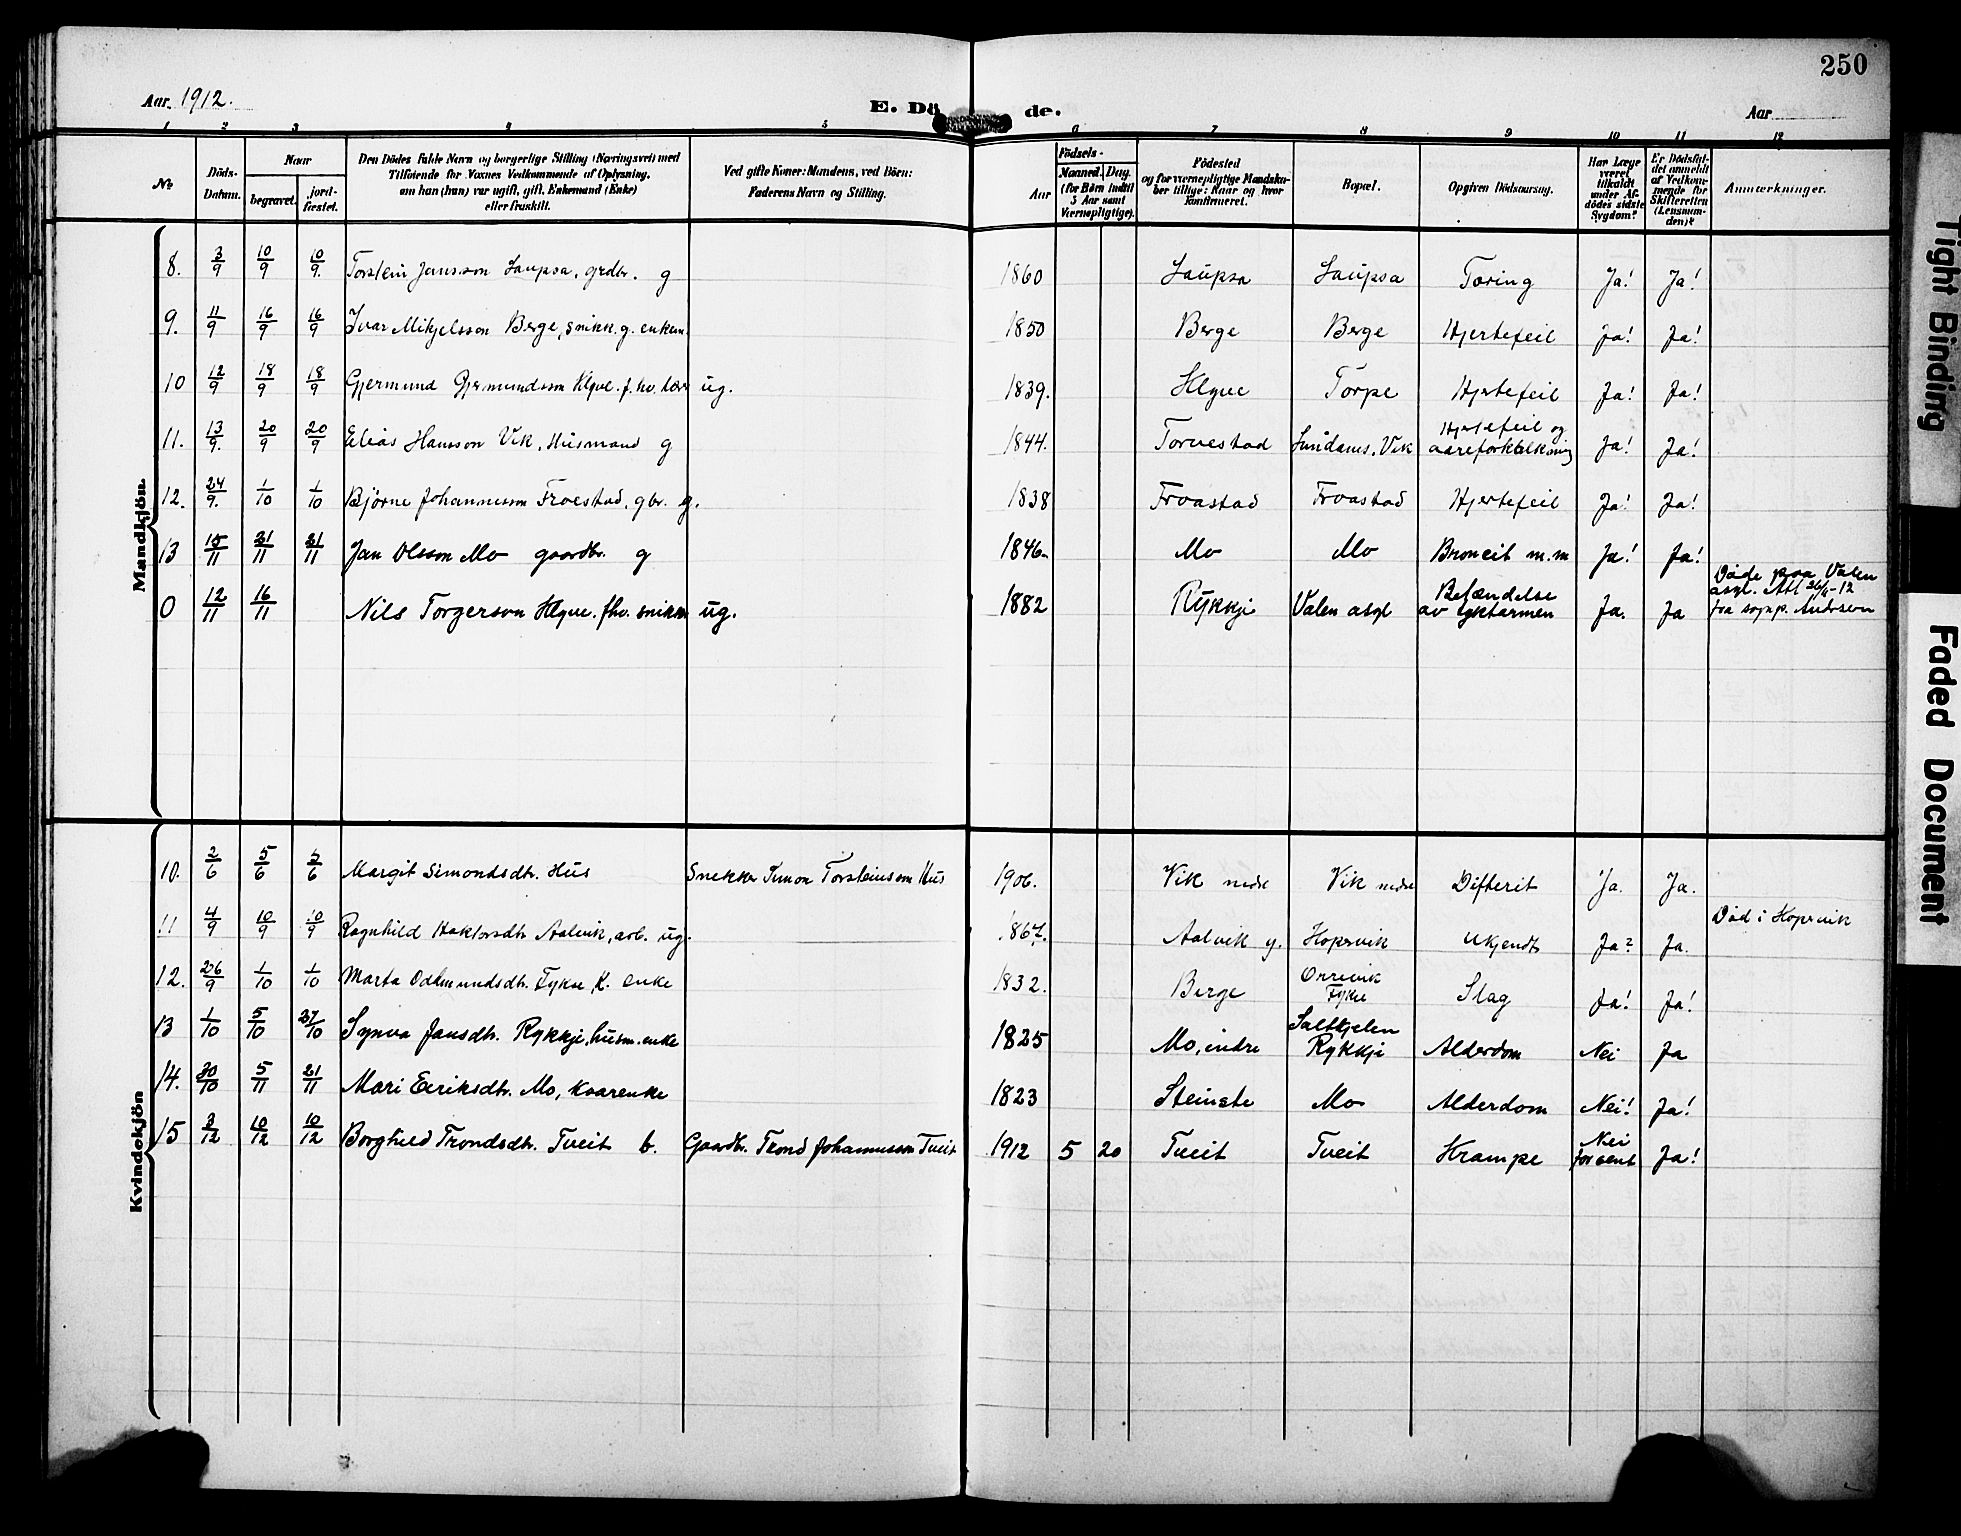 250
Aar 1912.
E. Döde.
Aar
1 2 3 4 5 6 7 8 9 10 11 12
No
Döds-Datum.
Naar
begravet.
jord-fæstet.
Den Dödes fulde Navn og borgerlige Stilling (Næringsvei) med
Tilföiende for Voxnes Vedkommende af Oplysning,
om han (hun) var ugift, gift, Enkemand (Enke)
eller fraskilt.
Ved gifte Koner: Mandens, ved Börn:
Faderens Navn og Stilling.
Födsels-
Aar
Maaned. Dag.
(for Börn indtil
5 Aar samt
Værnepligtige).
Födested
og for værnepligtige Mandska-
ber tillige: Naar og hvor
Konfirmeret.
Bopæl.
Opgiven Dödsaarsag.
Har Læge
været
tilkaldt
under Af-
dödes sidste
Sygdom?
Er Dödsfal-
det anmeldt
af Vedkom-
mende for
Skifteretten
(Lensman-
den)?
Anmærkninger.
Mandkjön.
8. 3/9 10/9 10/9. Torstein Jansson Laupsa, grdbr. g 1860 Laupsa Laupsa Tæring Ja! Ja!
9. 11/9 16/9 16/9 Ivar Mikjelsson Berge, snikk. g. enkem. 1850 Berge Berge Hjertefeil Ja! Ja!
10 12/9 18/9 18/9 Gjermund Gjermundsson Klyve. f. hv. lær ug. 1839. Klyve Torpe Hjertefeil Ja! Ja!
11. 13/9. 20/9 20/9 Elias Hansson Vik, Husmand g 1844. Torvestad Vik Hjertefeil og
aareforkalkning Ja! Ja!
12. 24/9. 1/10 1/10 Bjørne Johannesson Froestad, gbr. g. 1838 Froastad Froastad Hjertefeil Ja! Ja!
13 15/11 21/11 21/11 Jan Olsson Mo gaardbr. g 1846. Mo Mo Broncit m.m Ja! Ja!
0 12/11 16/11 Nils Torgerson Klyve. fhv. snikker ug. 1882 Rykkje Valen asyl Betændelse
av tyktarmen Ja. Ja Døde paa Valen
asyl. Att 26/11-12
fra sogp. Anderson
Kvindekjön
10. 2/6 5/6 5/6 Margit Simonsdtr. Hus Snekker Simon Torsteinsson Hus 1906. Vik nedre Vik nedre Difterit Ja. Ja.
11 4/9 10/9 10/9 Ragnhild Haktorsdtr Aalvik, arb. ug. 1867. Aalvik y. Hopsvik Ukjendt Ja? Ja. Död i Hopsvik
12. 26/9 1/10 1/10 Marta Odmundsdtr. Fykse, k. enke 1832. Berge
Fykse Slag Ja! Ja!
13 1/10 5/10 27/10 Synva Jansdtr. Rykkje, husm. enke 1825 Mo, indre Saltkjelen
Rykkje Alderdom Nei Ja
14. 30/10 5/11 21/11 Mari Eiriksdtr. Mo, kaarenke 1823 Steinstø Mo Alderdom Nei! Ja!
15 3/12 10/12 10/12 Borghild Trondsdtr. Tveit b. Gaardbr. Trond Johannesson Tveit 1912 5 20 Tveit Tveit Krampe Nei
for sent Ja!
Tight Binding
Faded Document